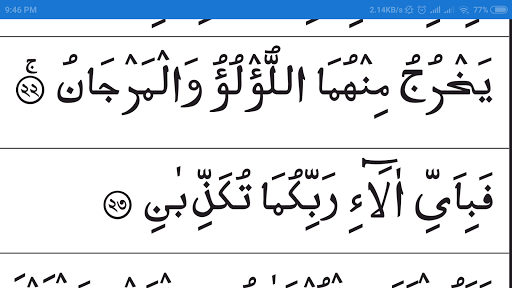 9:46 PM 2.14KB/s 77%
يَخْرُجُ مِنْهُمَا اللُّؤْلُؤُ وَالْمَرْجَانُ ۚ ۝٢٢
فَبِاَيِّ اٰلَآءِ رَبِّكُمَا تُكَذِّبٰنِ ۝٢٣